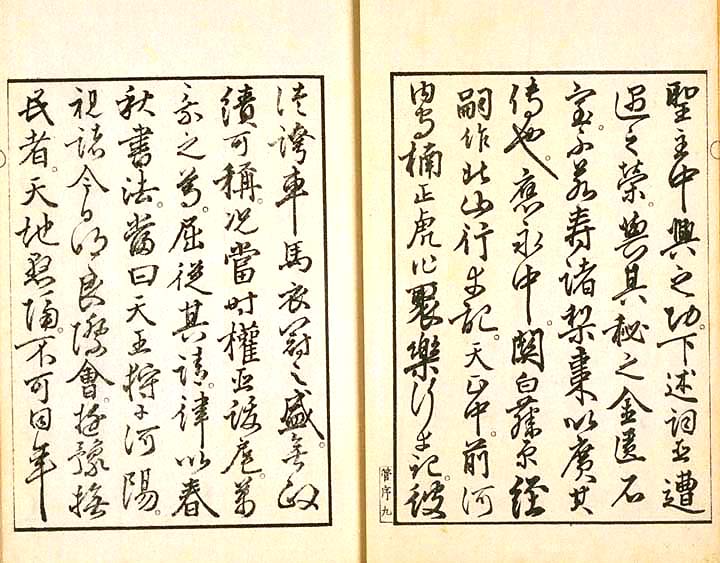 聖主中興之功。下述詞臣遭
遇之榮。與其秘之金匱石
室。不若壽諸梨棗以廣其
傳也。應永中。關白藤原經
嗣作北山行幸記。天正中。前河
内守楠正虎作聚樂行幸記。彼
管序九
徒誇車馬衣冠之盛。無政
績可稱。况當時權臣跋扈。萬
乘之尊。屈從其請。律以春
秋書法。當曰天王狩于河陽。
視諸今日明良際會。遊豫撫
民者。天地懸隔。不可同年